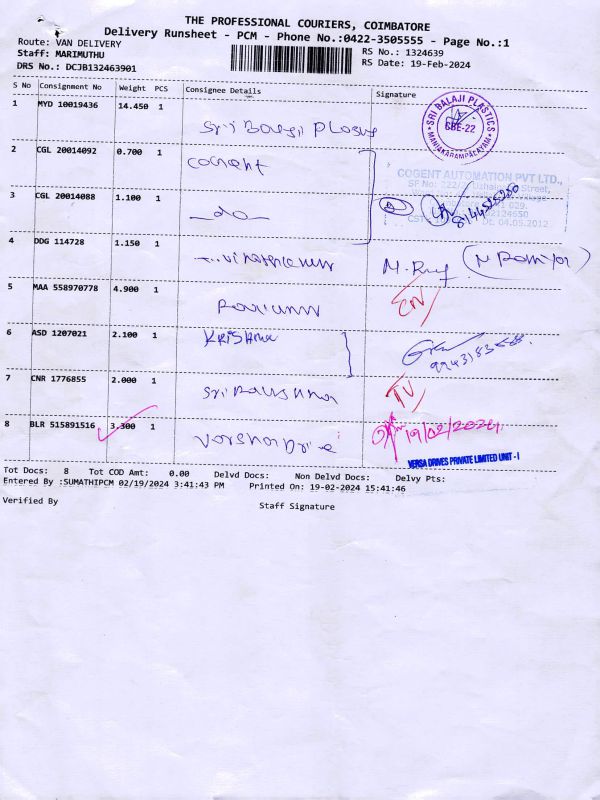 THE PROFESSIONAL COURIERS, COIMBATORE
Delivery Runsheet - PCM - Phone No.:0422-3505555 - Page No.:1
Route: VAN DELIVERY
Staff: MARIMUTHU
DRS No.: DCJB132463901
RS No.: 1324639
RS Date: 19-Feb-2024
S No Consignment No Weight PCS Consignee Details Signature
1 MYD 10019436 14.450 1 Sri Balaji Plastic
SRI BALAJI PLASTICS
CBE-22
MANIAKARAMPALAYAM
2 CGL 20014092 0.700 1 cogent
COGENT AUTOMATION PVT LTD.,
SF No: 222/ Street,
Village
029.
3 CGL 20014088 1.100 1 -do-
CST Dt. 04.05.2012
4 DDG 114728 1.150 1 M. (M Ramya)
5 MAA 558970778 4.900 1
6 ASD 1207021 2.100 1 KRISHna
7 CNR 1776855 2.000 1 Sri
8 BLR 515891516 3.300 1 Varsha Drive 19/02/2024
VERSA DRIVES PRIVATE LIMITED UNIT - I
Tot Docs: 8 Tot COD Amt: 0.00 Delvd Docs: Non Delvd Docs: Delvy Pts:
Entered By :SUMATHIPCM 02/19/2024 3:41:43 PM Printed On: 19-02-2024 15:41:46
Verified By
Staff Signature